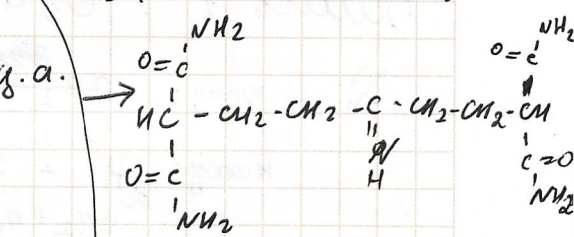 g.a.
NH2
O=C
HC-CH2-CH2-C-CH2-CH2-CH
N
H
O=C
NH2
NH2
O=C
C=O
NH2